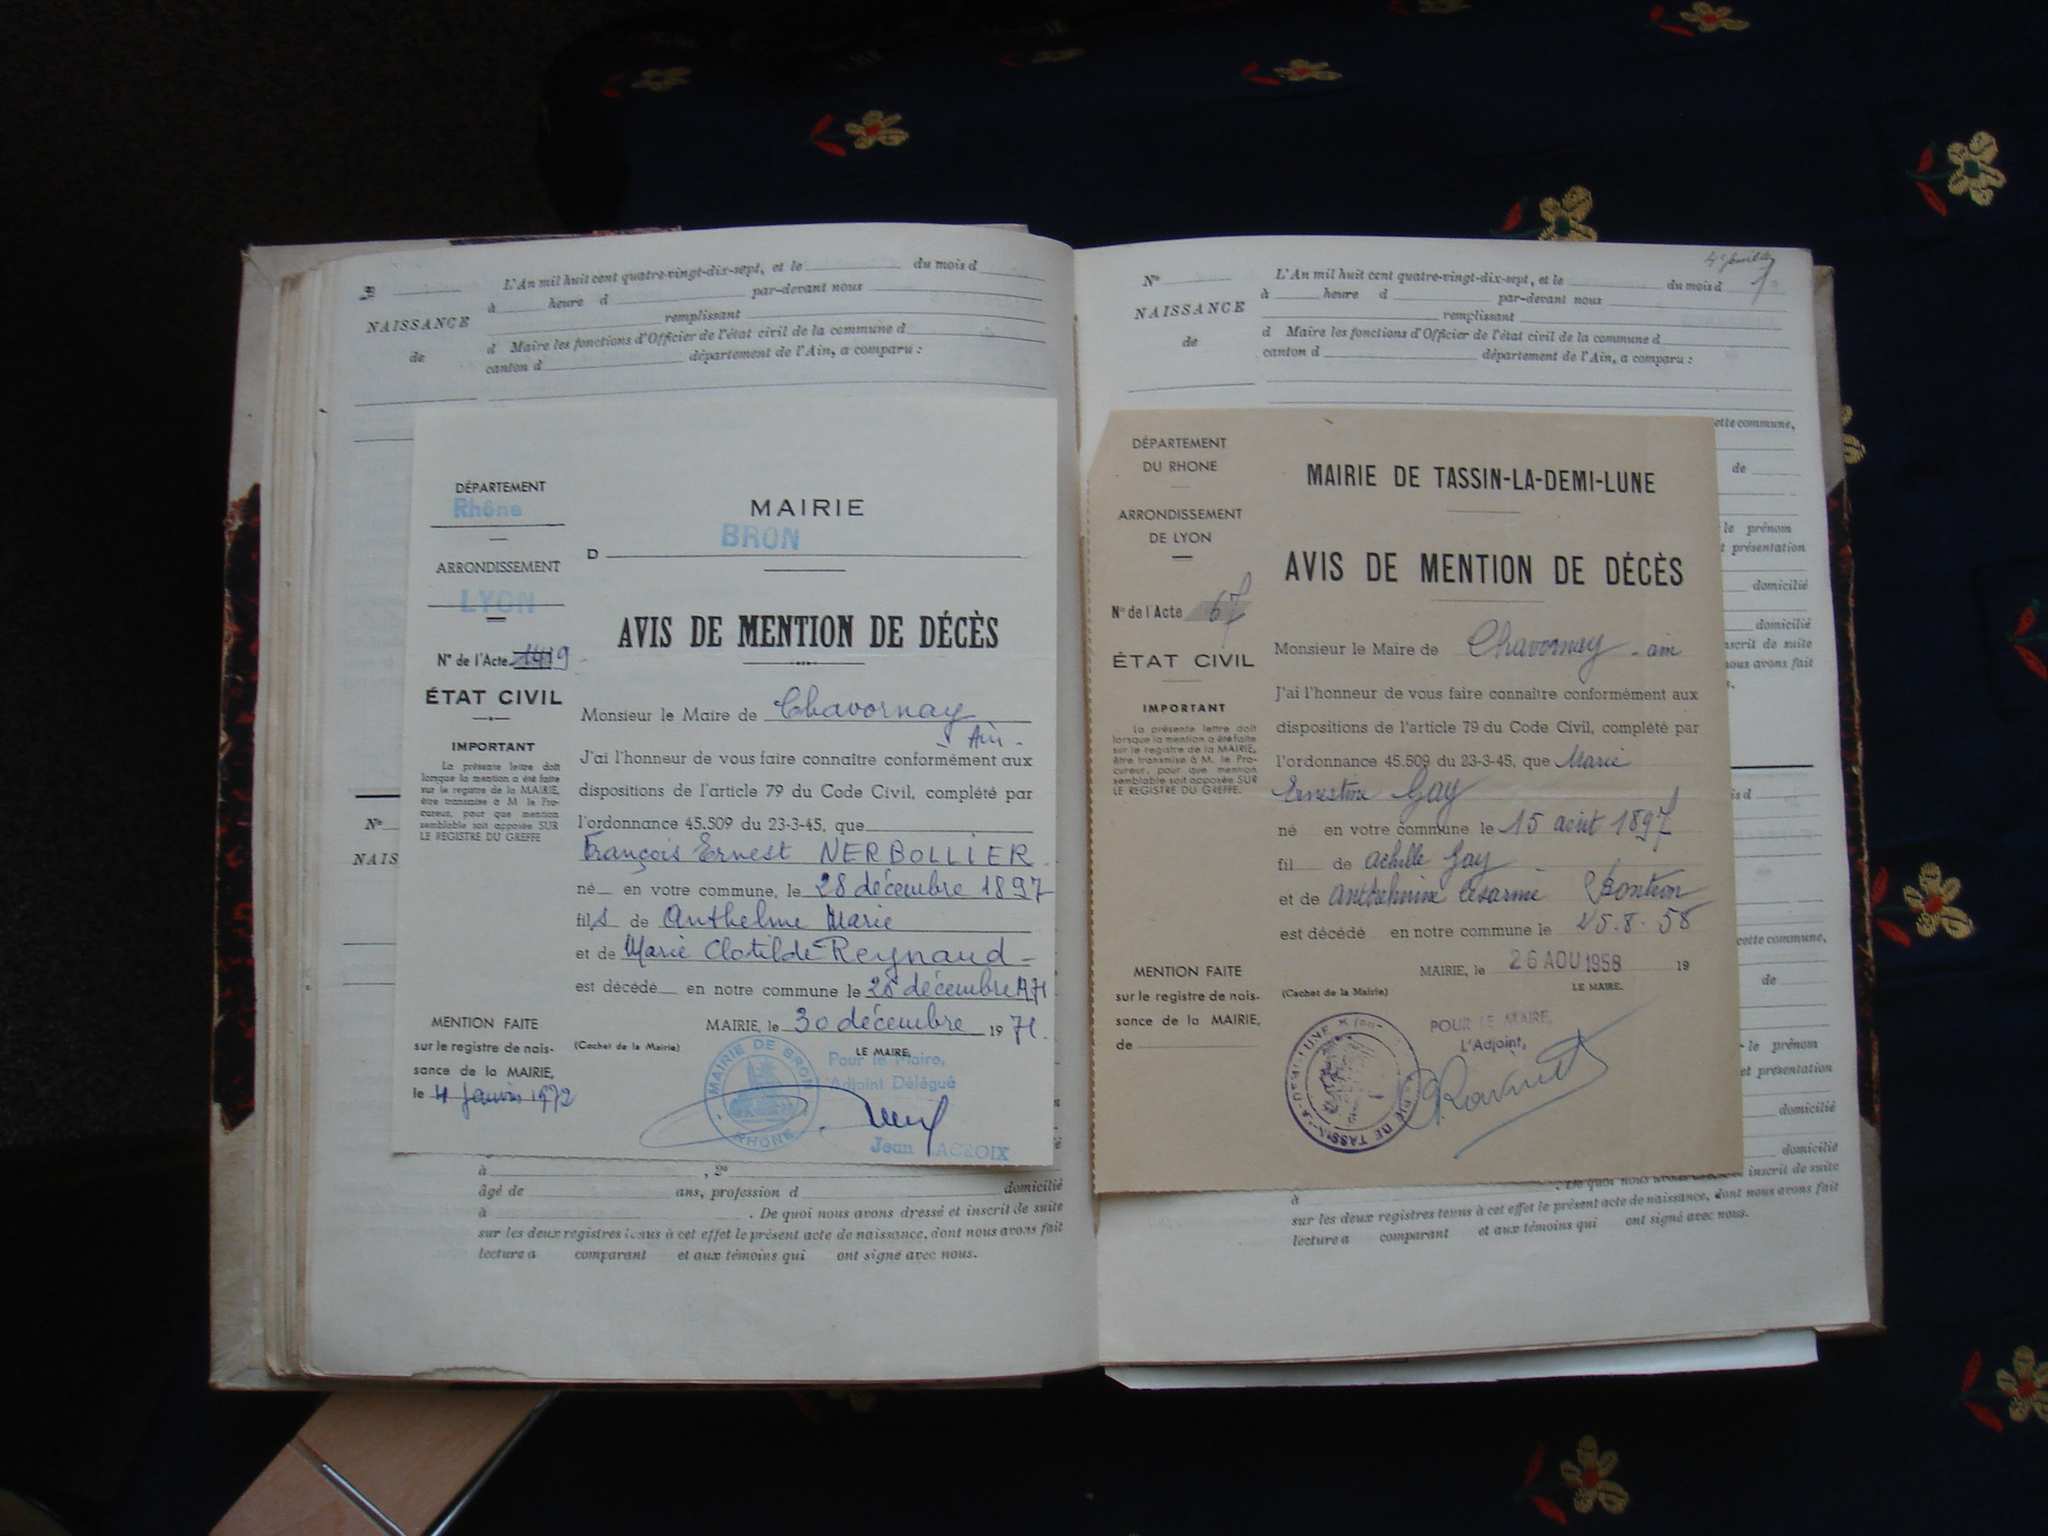 NAISSANCE
de
L'An mil huit cent quatre-vingt-dix-sept, et le du mois d
à heure d par-devant nous
remplissant
d Maire les fonctions d'Officier de l'état civil de la commune d
canton d département de l'Ain, a comparu :
DÉPARTEMENT
Rhône
ARRONDISSEMENT
LYON
N° de l'Acte 1419
ÉTAT CIVIL
IMPORTANT
La présente lettre doit
lorsque la mention a été faite
sur le registre de la MAIRIE,
être transmise à M le Pro-
cureur, pour que mention
semblable soit apposée SUR
LE REGISTRE DU GREFFE
MENTION FAITE
sur le registre de nais-
sance de la MAIRIE,
le 4 Janvier 1972
MAIRIE
D BRON
AVIS DE MENTION DE DÉCÈS
Monsieur le Maire de Chavornay
Ain.
J'ai l'honneur de vous faire connaître conformément aux
dispositions de l'article 79 du Code Civil, complété par
l'ordonnance 45.509 du 23-3-45, que
François Ernest NERBOLLIER
né en votre commune, le 28 décembre 1897
fils de Anthelme Marie
et de Marie Clotilde Reynaud
est décédé en notre commune le 28 décembre 1971
MAIRIE, le 30 décembre 1971.
(Cachet de la Mairie)
LE MAIRE,
MAIRIE DE BRON
RHÔNE
Pour le Maire,
Adjoint Délégué
Jean LACROIX
N°
NAIS
à , 2°
âgé de ans, profession d domicilié
à . De quoi nous avons dressé et inscrit de suite
sur les deux registres tenus à cet effet le présent acte de naissance, dont nous avons fait
lecture a comparant et aux témoins qui ont signé avec nous.
N°
NAISSANCE
de
L'An mil huit cent quatre-vingt-dix-sept, et le du mois d
à heure d par-devant nous
remplissant
d Maire les fonctions d'Officier de l'état civil de la commune d
canton d département de l'Ain, a comparu :
DÉPARTEMENT
DU RHONE
ARRONDISSEMENT
DE LYON
N° de l'Acte 67
ÉTAT CIVIL
IMPORTANT
La présente lettre doit
lorsque la mention a été faite
sur le registre de la MAIRIE,
être transmise à M. le Pro-
cureur, pour que mention
semblable soit apposée SUR
LE REGISTRE DU GREFFE.
MENTION FAITE
sur le registre de nais-
sance de la MAIRIE,
de
MAIRIE DE TASSIN-LA-DEMI-LUNE
AVIS DE MENTION DE DÉCÈS
Monsieur le Maire de Chavornay - ain
J'ai l'honneur de vous faire connaître conformément aux
dispositions de l'article 79 du Code Civil, complété par
l'ordonnance 45.509 du 23-3-45, que Marie
Ernestine Gay
né en votre commune le 15 août 1897
fil de Achille Gay
et de Anthelmine Césarine
est décédé en notre commune le 25.8.58
MAIRIE, le 26 AOU 1958 19
(Cachet de la Mairie)
LE MAIRE.
POUR LE MAIRE,
L'Adjoint,
ette commune,
de
le prénom
t présentation
domicilié
domicilié
nscrit de suite
nous avons fait
s.
is d
cette commune,
de
le prénom
et présentation
domicilié
domicilié
à . De quoi nous avons dressé et inscrit de suite
sur les deux registres tenus à cet effet le présent acte de naissance, dont nous avons fait
lecture a comparant et aux témoins qui ont signé avec nous.